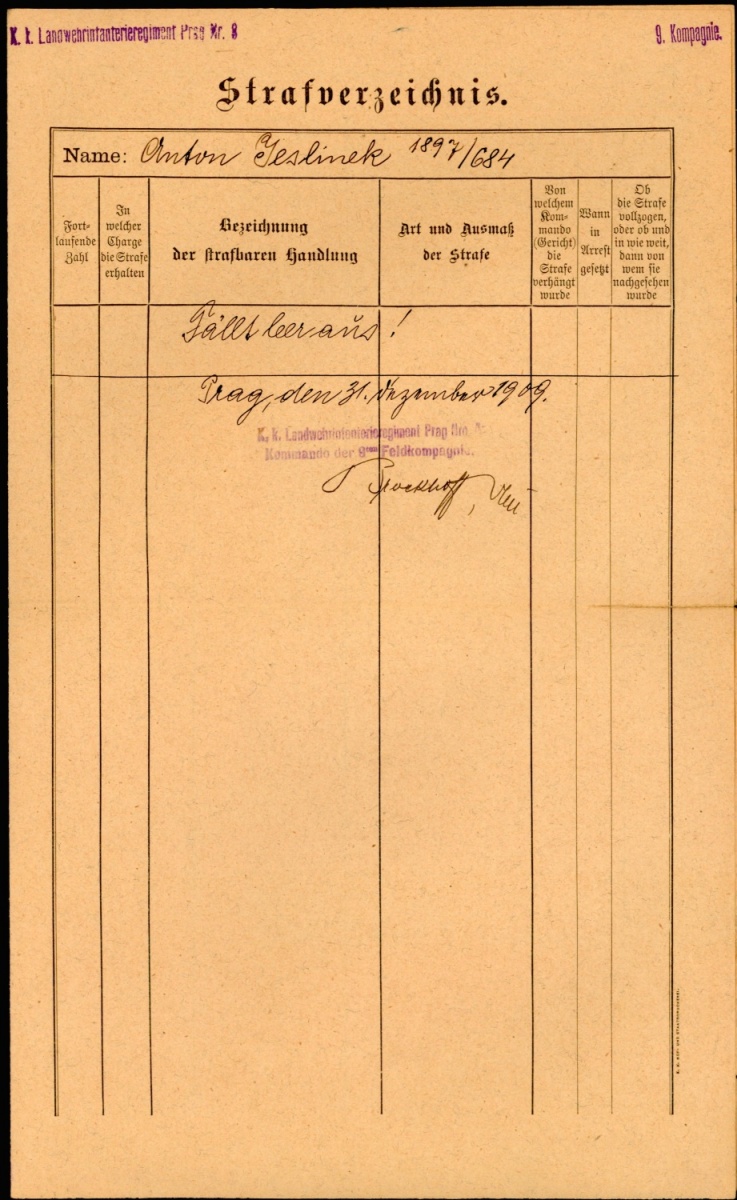 K. k. Landwehrinfanterieregiment Prag Nr. 8
9. Kompagnie.
Strafverzeichnis.
Name: Anton Jeslinek 1897/684
Fort-
laufende
Zahl
In
welcher
Charge
die Strafe
erhalten
Bezeichnung
der strafbaren Handlung
Art und Ausmaß
der Strafe
Von
welchem
Kom-
mando
(Gericht)
die
Strafe
verhängt
wurde
Wann
in
Arrest
gesetzt
Ob
die Strafe
vollzogen,
oder ob und
in wie weit,
dann von
wem sie
nachgesehen
wurde
Fällt leer aus!
Prag, den 31. Dezember 1909.
K. k. Landwehrinfanterieregiment Prag Nro.
Kommando der 9ten Feldkompagnie.